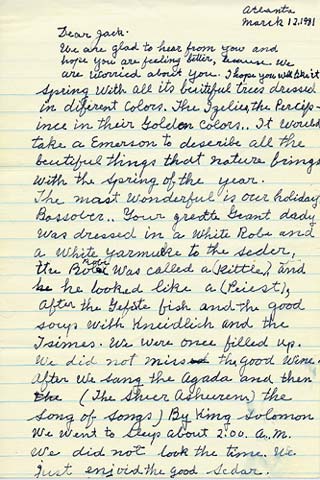 Atlanta
March 12, 1981
Dear Jack.
We are glad to hear from you and
hope you are feeling better, because we
are worried about you. I hope you will like it
Spring With all its beutiful trees dressed
in diferent colors. The Izelies, the Percips-
ince in their Golden Colors.. It would
take a Emerson to describe all the
beutiful things that nature brings
with the Spring of the year.
The most Wonderful is our holiday
Passover.. Your greatte Grant dady
was dressed in a White Robe and
a White yarmelke to the seder,
the Robe was called a (Kittle), and
he looked like a (Priest),
After the Gefilte fish and the good
soup with Kneidlich and the
Tsimes. We were once filled up.
We did not miss the good Wine.
After We Sang the Agada and then
the (The Sheer Asheurem) the
Song of Songs) By King Solomon
We went to sleep about 2:00. A.M.
We did not look the time. We
Just enjoied the good Sedar.